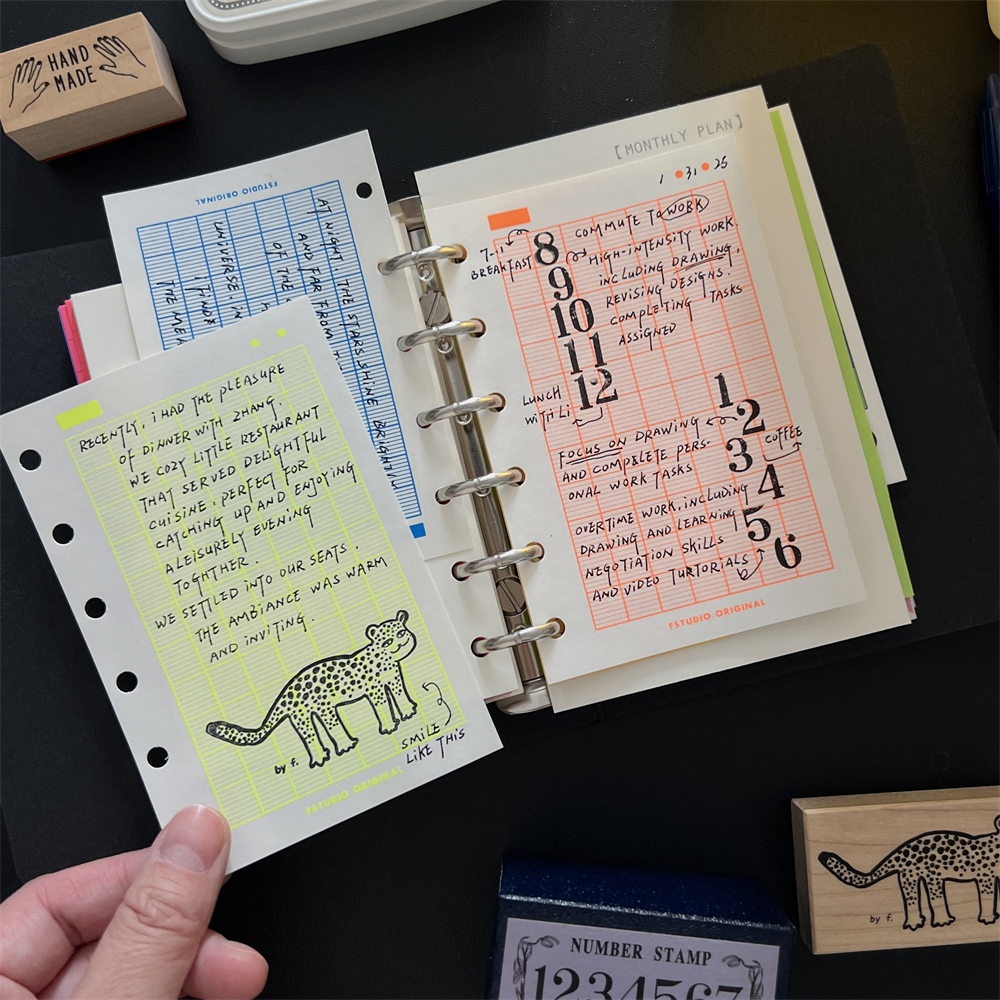 HAND
MADE
FSTUDIO ORIGINAL
AT NIGHT. THE STARS SHINE BRIGHTLY
AND FAR FROM
OF THE
UNIVERSE. IN
I FIND
THE
RECENTLY, I HAD THE PLEASURE
OF DINNER WITH ZHANG.
WE COZY LITTLE RESTAURANT
THAT SERVED DELIGHTFUL
CUISINE, PERFECT FOR
CATCHING UP AND ENJOYING
A LEISURELY EVENING
TOGHTHER.
WE SETTLED INTO OUR SEATS.
THE AMBIANCE WAS WARM
AND INVITING.
SMILE
LIKE THIS
by f.
FSTUDIO ORIGINAL
[MONTHLY PLAN]
1 • 31 • 25
7-11
BREAKFAST
8
9
10
11
12
COMMUTE TO WORK
HIGH-INTENSITY WORK.
INCLUDING DRAWING.
REVISING DESIGNS.
COMPLETING TASKS
ASSIGNED
LUNCH
WITH Li
1
2
3
4
5
6
FOCUS ON DRAWING
AND COMPLETE PERS-
ONAL WORK TASKS
COFFEE
OVERTIME WORK, INCLUDING
DRAWING AND LEARNING
NEGOTIATION SKILLS
AND VIDEO TURTORIALS
FSTUDIO ORIGINAL
by f.
NUMBER STAMP
1234567